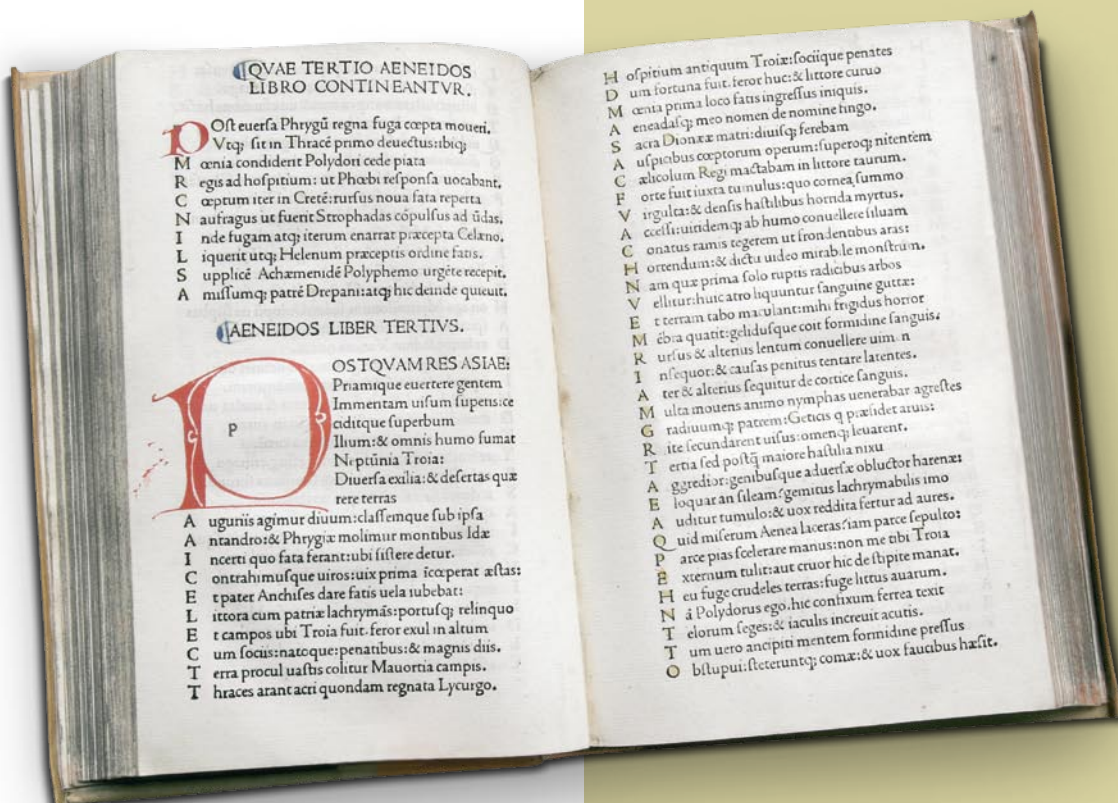 QVAE TERTIO AENEIDOS
LIBRO CONTINEANTVR.
POſt euerſa Phrygũ regna fuga cœpta moueri.
Vtq; ſit in Thracẽ primo deuectus:ibiq;
M œnia condiderit Polydori cede piata
R egis ad hoſpitium: ut Phœbi reſponſa uocabant.
C œptum iter in Cretẽ:rurſus noua fata reperta
N aufragus ut fuerit Strophadas cõpulſus ad ũdas.
I nde fugam atq; iterum enarrat præcepta Celæno.
L iquerit utq; Helenum præceptis ordine fatis.
S upplicẽ Achæmenidẽ Polyphemo urgẽte recepit.
A miſſumq; patrẽ Drepani:atq; hic deinde quieuit.
AENEIDOS LIBER TERTIVS.
P
POSTQVAM RES ASIAE:
Priamique euertere gentem
Immentam uiſum ſuperis:ce
ciditque ſuperbum
Ilium:& omnis humo fumat
Neptũnia Troia:
Diuerſa exilia:& deſertas quæ
rere terras
A uguriis agimur diuum:claſſemque ſub ipſa
A ntandro:& Phrygiæ molimur montibus Idæ
I ncerti quo fata ferant:ubi ſiſtere detur.
C ontrahimuſque uiros:uix prima ĩcœperat æſtas:
E t pater Anchiſes dare fatis uela iubebat:
L ittora cum patriæ lachrymãs:portuſq; relinquo
E t campos ubi Troia fuit.feror exul in altum
C um ſociis:natoque:penatibus:& magnis diis.
T erra procul uaſtis colitur Mauortia campis.
T hraces arant acri quondam regnata Lycurgo.
H oſpitium antiquum Troiæ:ſociique penates
D um fortuna fuit.feror huc:& littore curuo
M œnia prima loco fatis ingreſſus iniquis.
A eneadaſq; meo nomen de nomine fingo.
S acra Dionææ matri:diuiſq; ferebam
A uſpicibus cœptorum operum:ſuperoq; nitentem
C ælicolum Regi mactabam in littore taurum.
F orte fuit iuxta tumulus:quo cornea ſummo
V irgulta:& denſis haſtilibus horrida myrtus.
A cceſſi:uiridemq; ab humo conuellere ſiluam
C onatus ramis tegerem ut frondentibus aras:
H orrendum:& dictu uideo mirabile monſtrum.
N am quæ prima ſolo ruptis radicibus arbos
V ellitur:huic atro liquuntur ſanguine guttæ:
E t terram tabo maculant:mihi frigidus horror
M ẽbra quatit:geliduſque coit formidine ſanguis.
R urſus & alterius lentum conuellere uim n
I nſequor:& cauſas penitus tentare latentes.
A ter & alterius ſequitur de cortice ſanguis.
M ulta mouens animo nymphas uenerabar agreſtes
G radiuumq; patrem:Geticis q præſidet aruis:
R ite ſecundarent uiſus:omenq; leuarent.
T ertia ſed poſtq̃ maiore haſtilia nixu
A ggredior:genibuſque aduerſæ obluctor harenæ:
E loquar an ſileam?gemitus lachrymabilis imo
A uditur tumulo:& uox reddita fertur ad aures.
Q uid miſerum Aenea laceras?iam parce ſepulto:
P arce pias ſcelerare manus:non me tibi Troia
E xternum tulit:aut cruor hic de ſtipite manat.
H eu fuge crudeles terras:fuge littus auarum.
N ã Polydorus ego.hic confixum ferrea texit
T elorum ſeges:& iaculis increuit acutis.
T um uero ancipiti mentem formidine preſſus
O bſtupui:ſteteruntq; comæ:& uox faucibus hæſit.